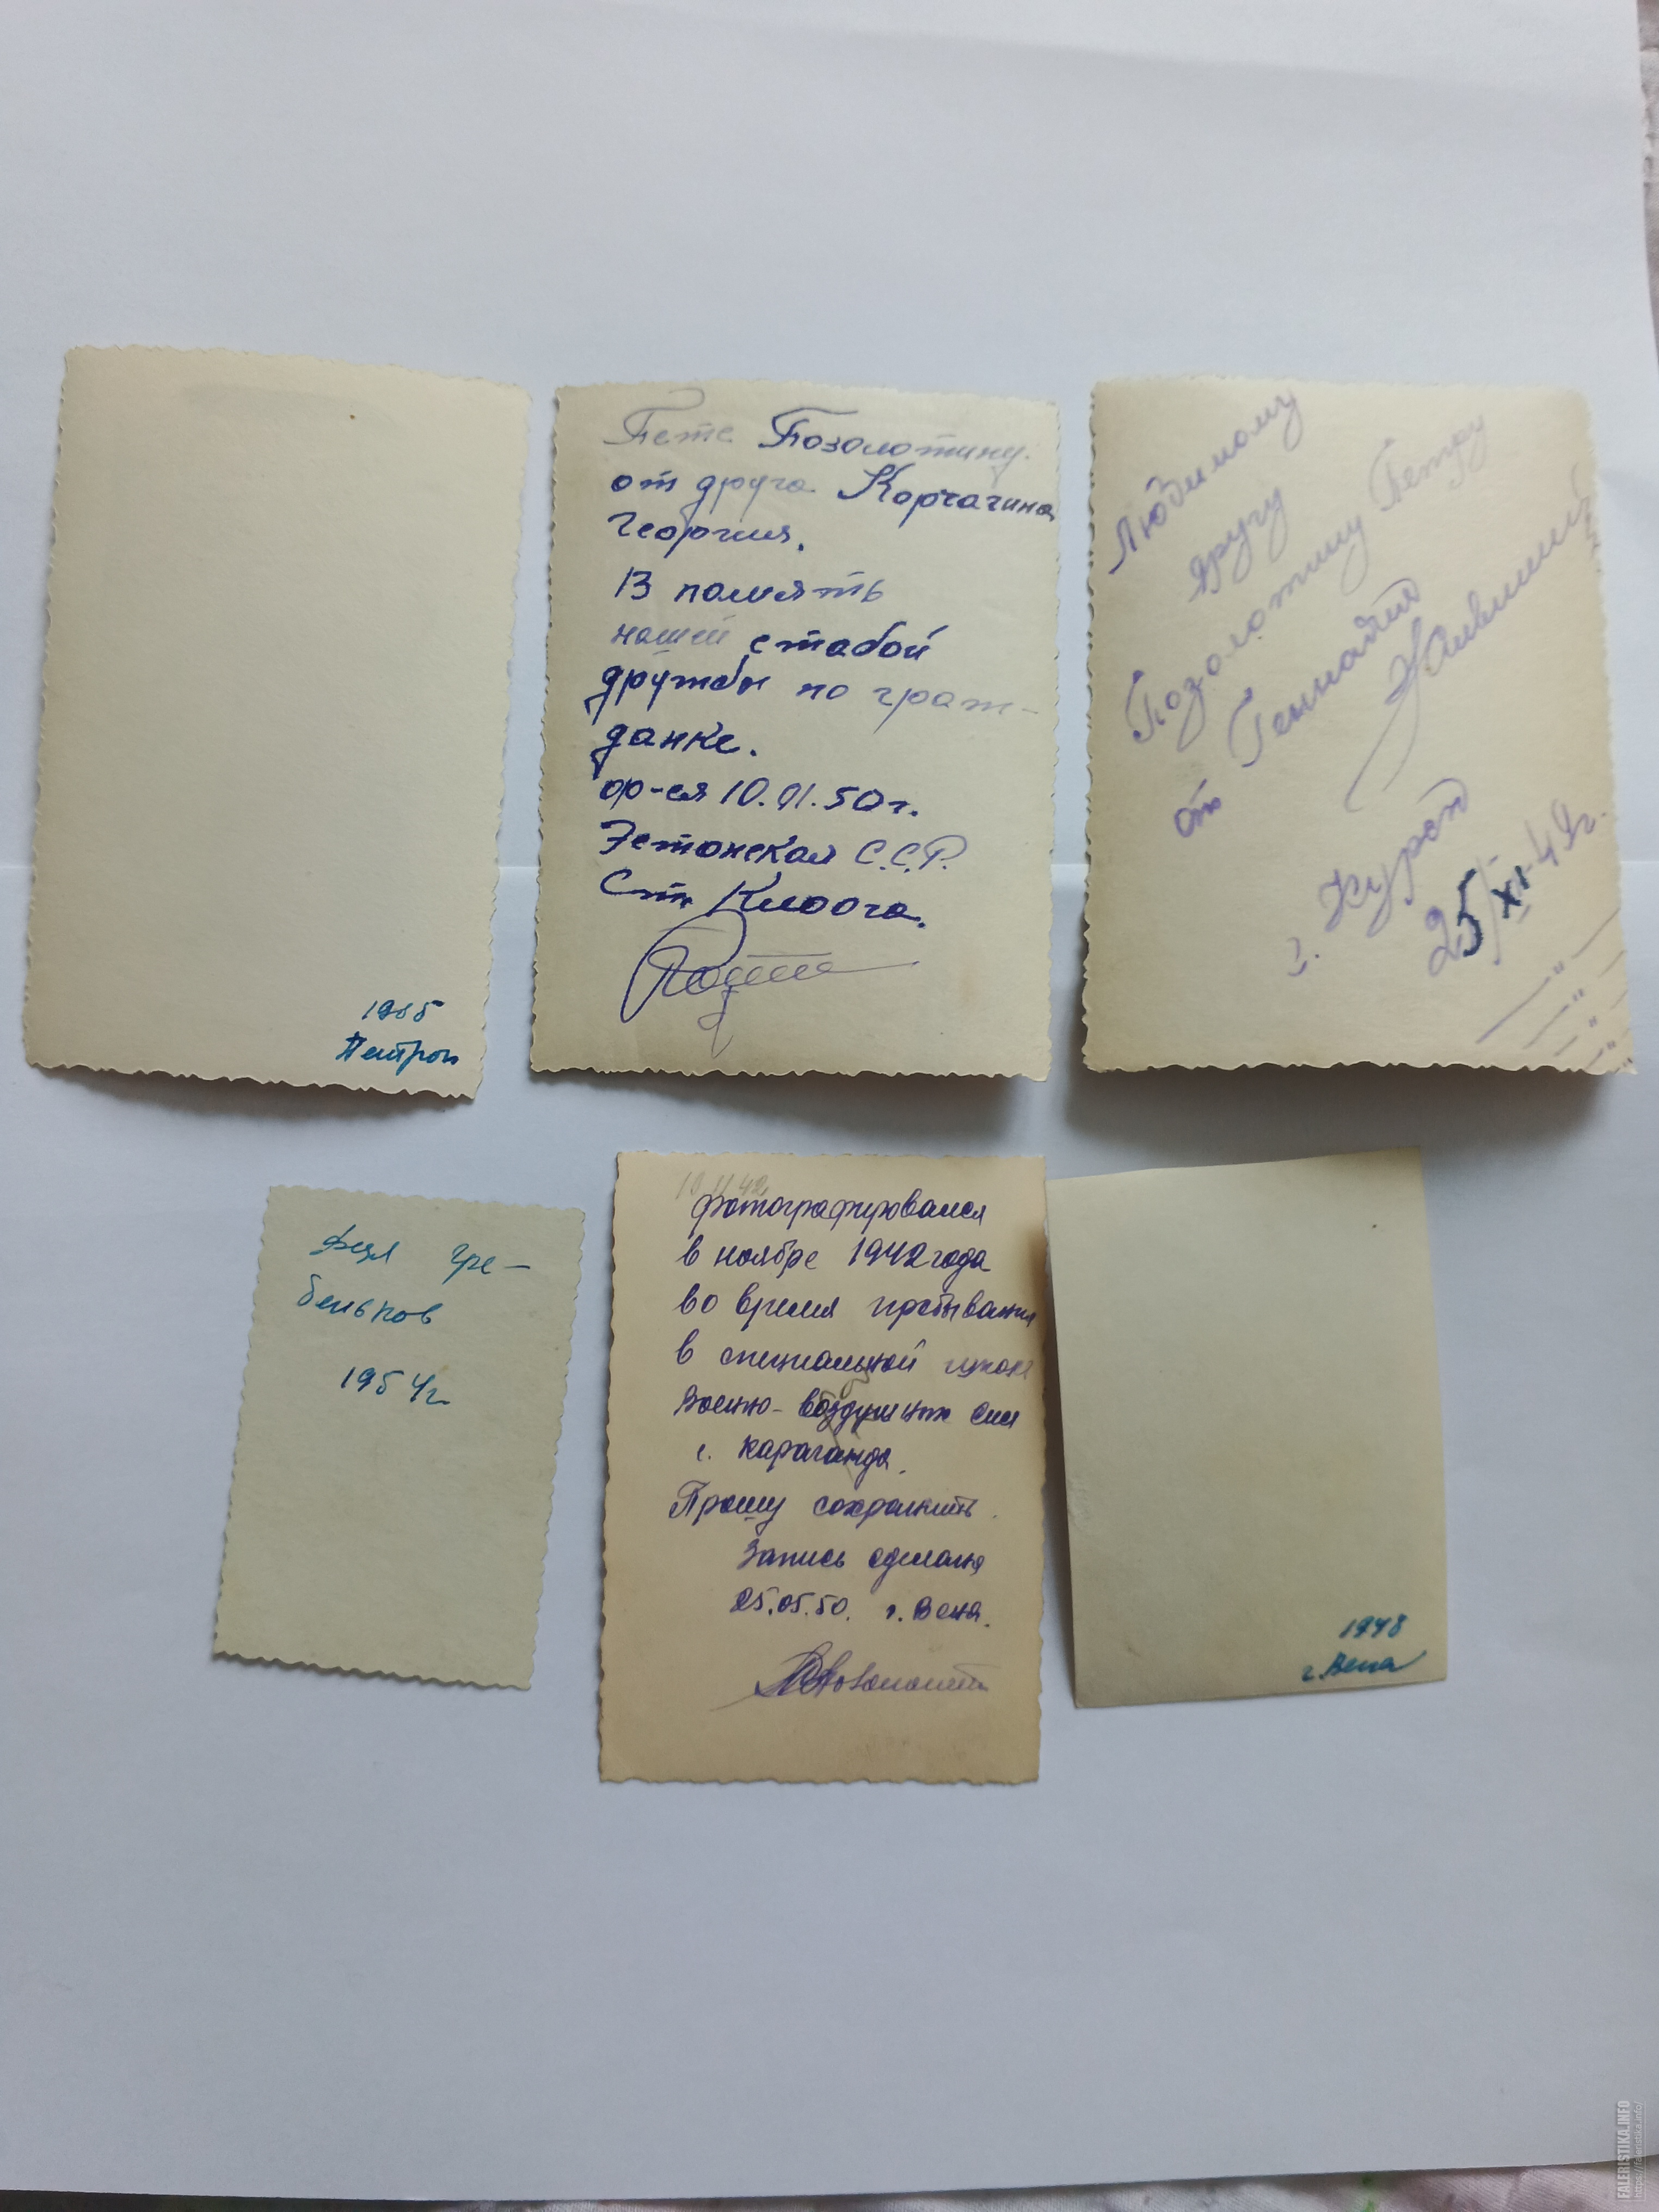 1955
Пете Позолотину.
от друга Корчагина
Георгия.
В помять
нашей стабой
дружбы по граж-
данке.
фр-ся 10.01.50г.
Эстонская С.С.Р.
Ст. Клоога.
Любимому
другу
Позолотину Петру
от Геннадия
г. Курск
25/XI-49г.
Федя Гре-
беньков
1954г.
фотографировался
в ноябре 1942 года
во время пребывания
в специальной школе
Военно-воздушных сил
г. Караганда.
Прошу сохранить.
Запись сделана
25.05.50. г. Вена.
1948
г. Вена
FALERISTIKA.INFO
https://faleristika.info/